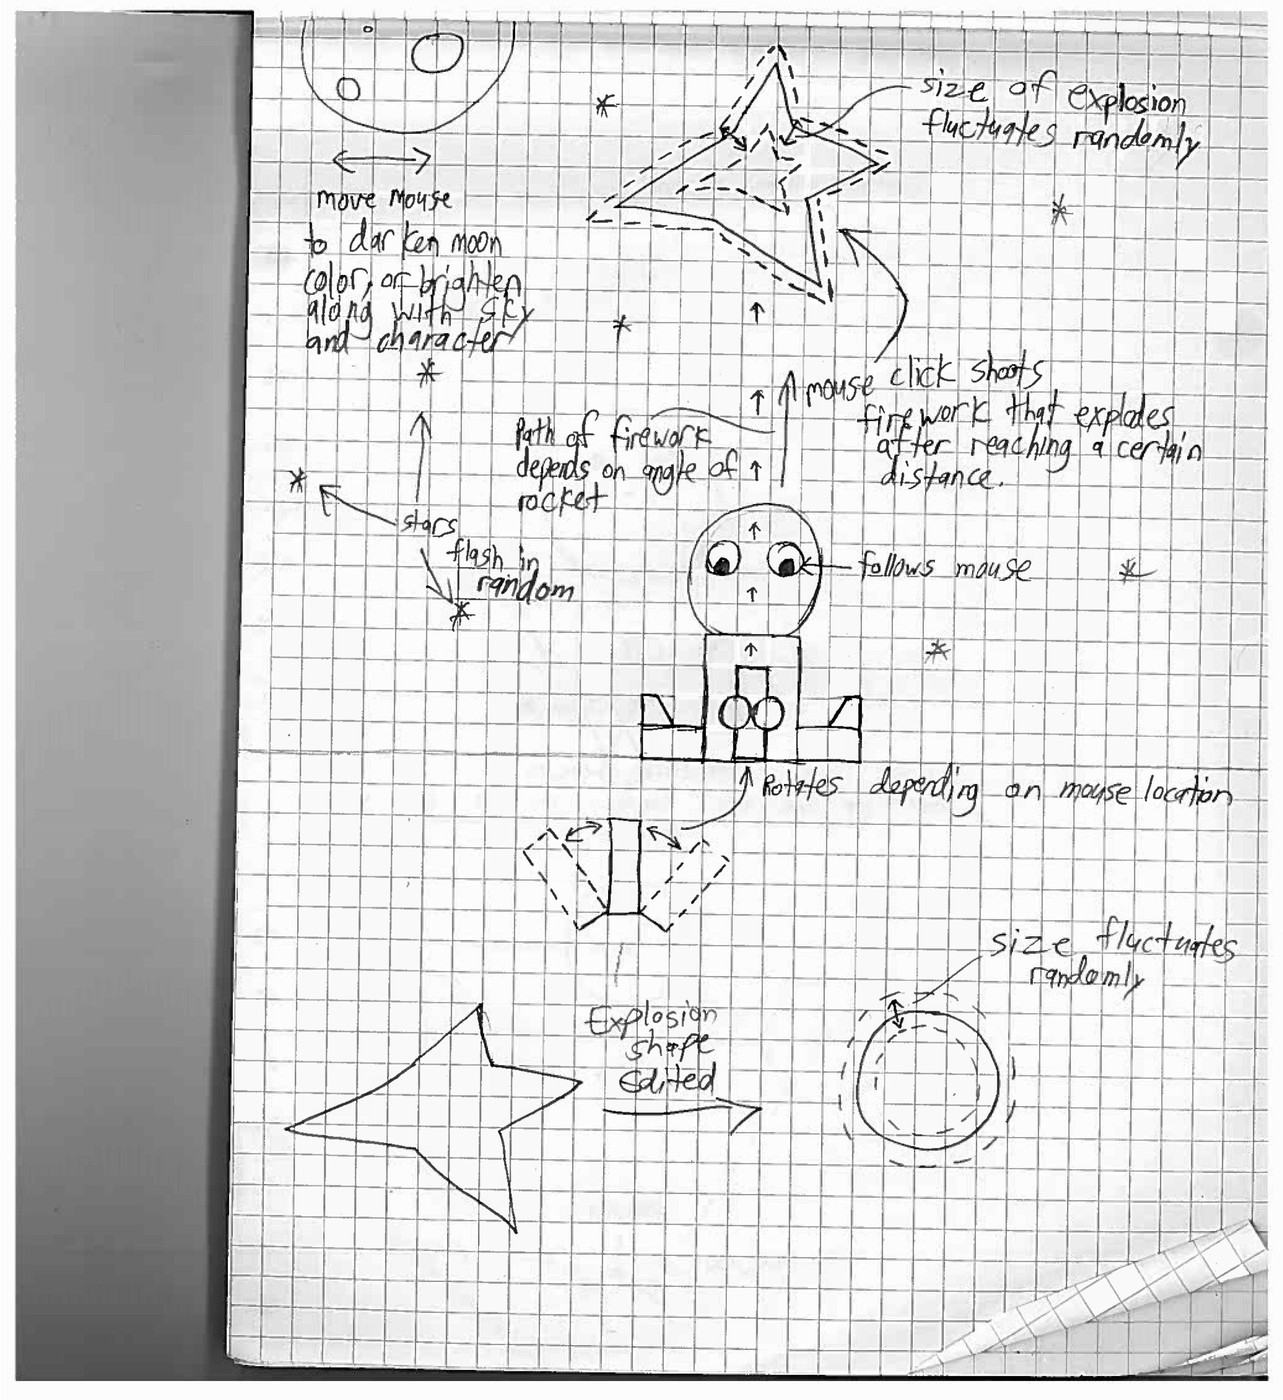 size of explosion
fluctuates randomly
move mouse
to darken moon
color, or brighten
along with sky
and character
mouse click shoots
firework that explodes
after reaching a certain
distance.
Path of firework
depends on angle of
rocket
stars
flash in
random
follows mouse
Rotates depending on mouse location
size fluctuates
randomly
Explosion
shape
Edited